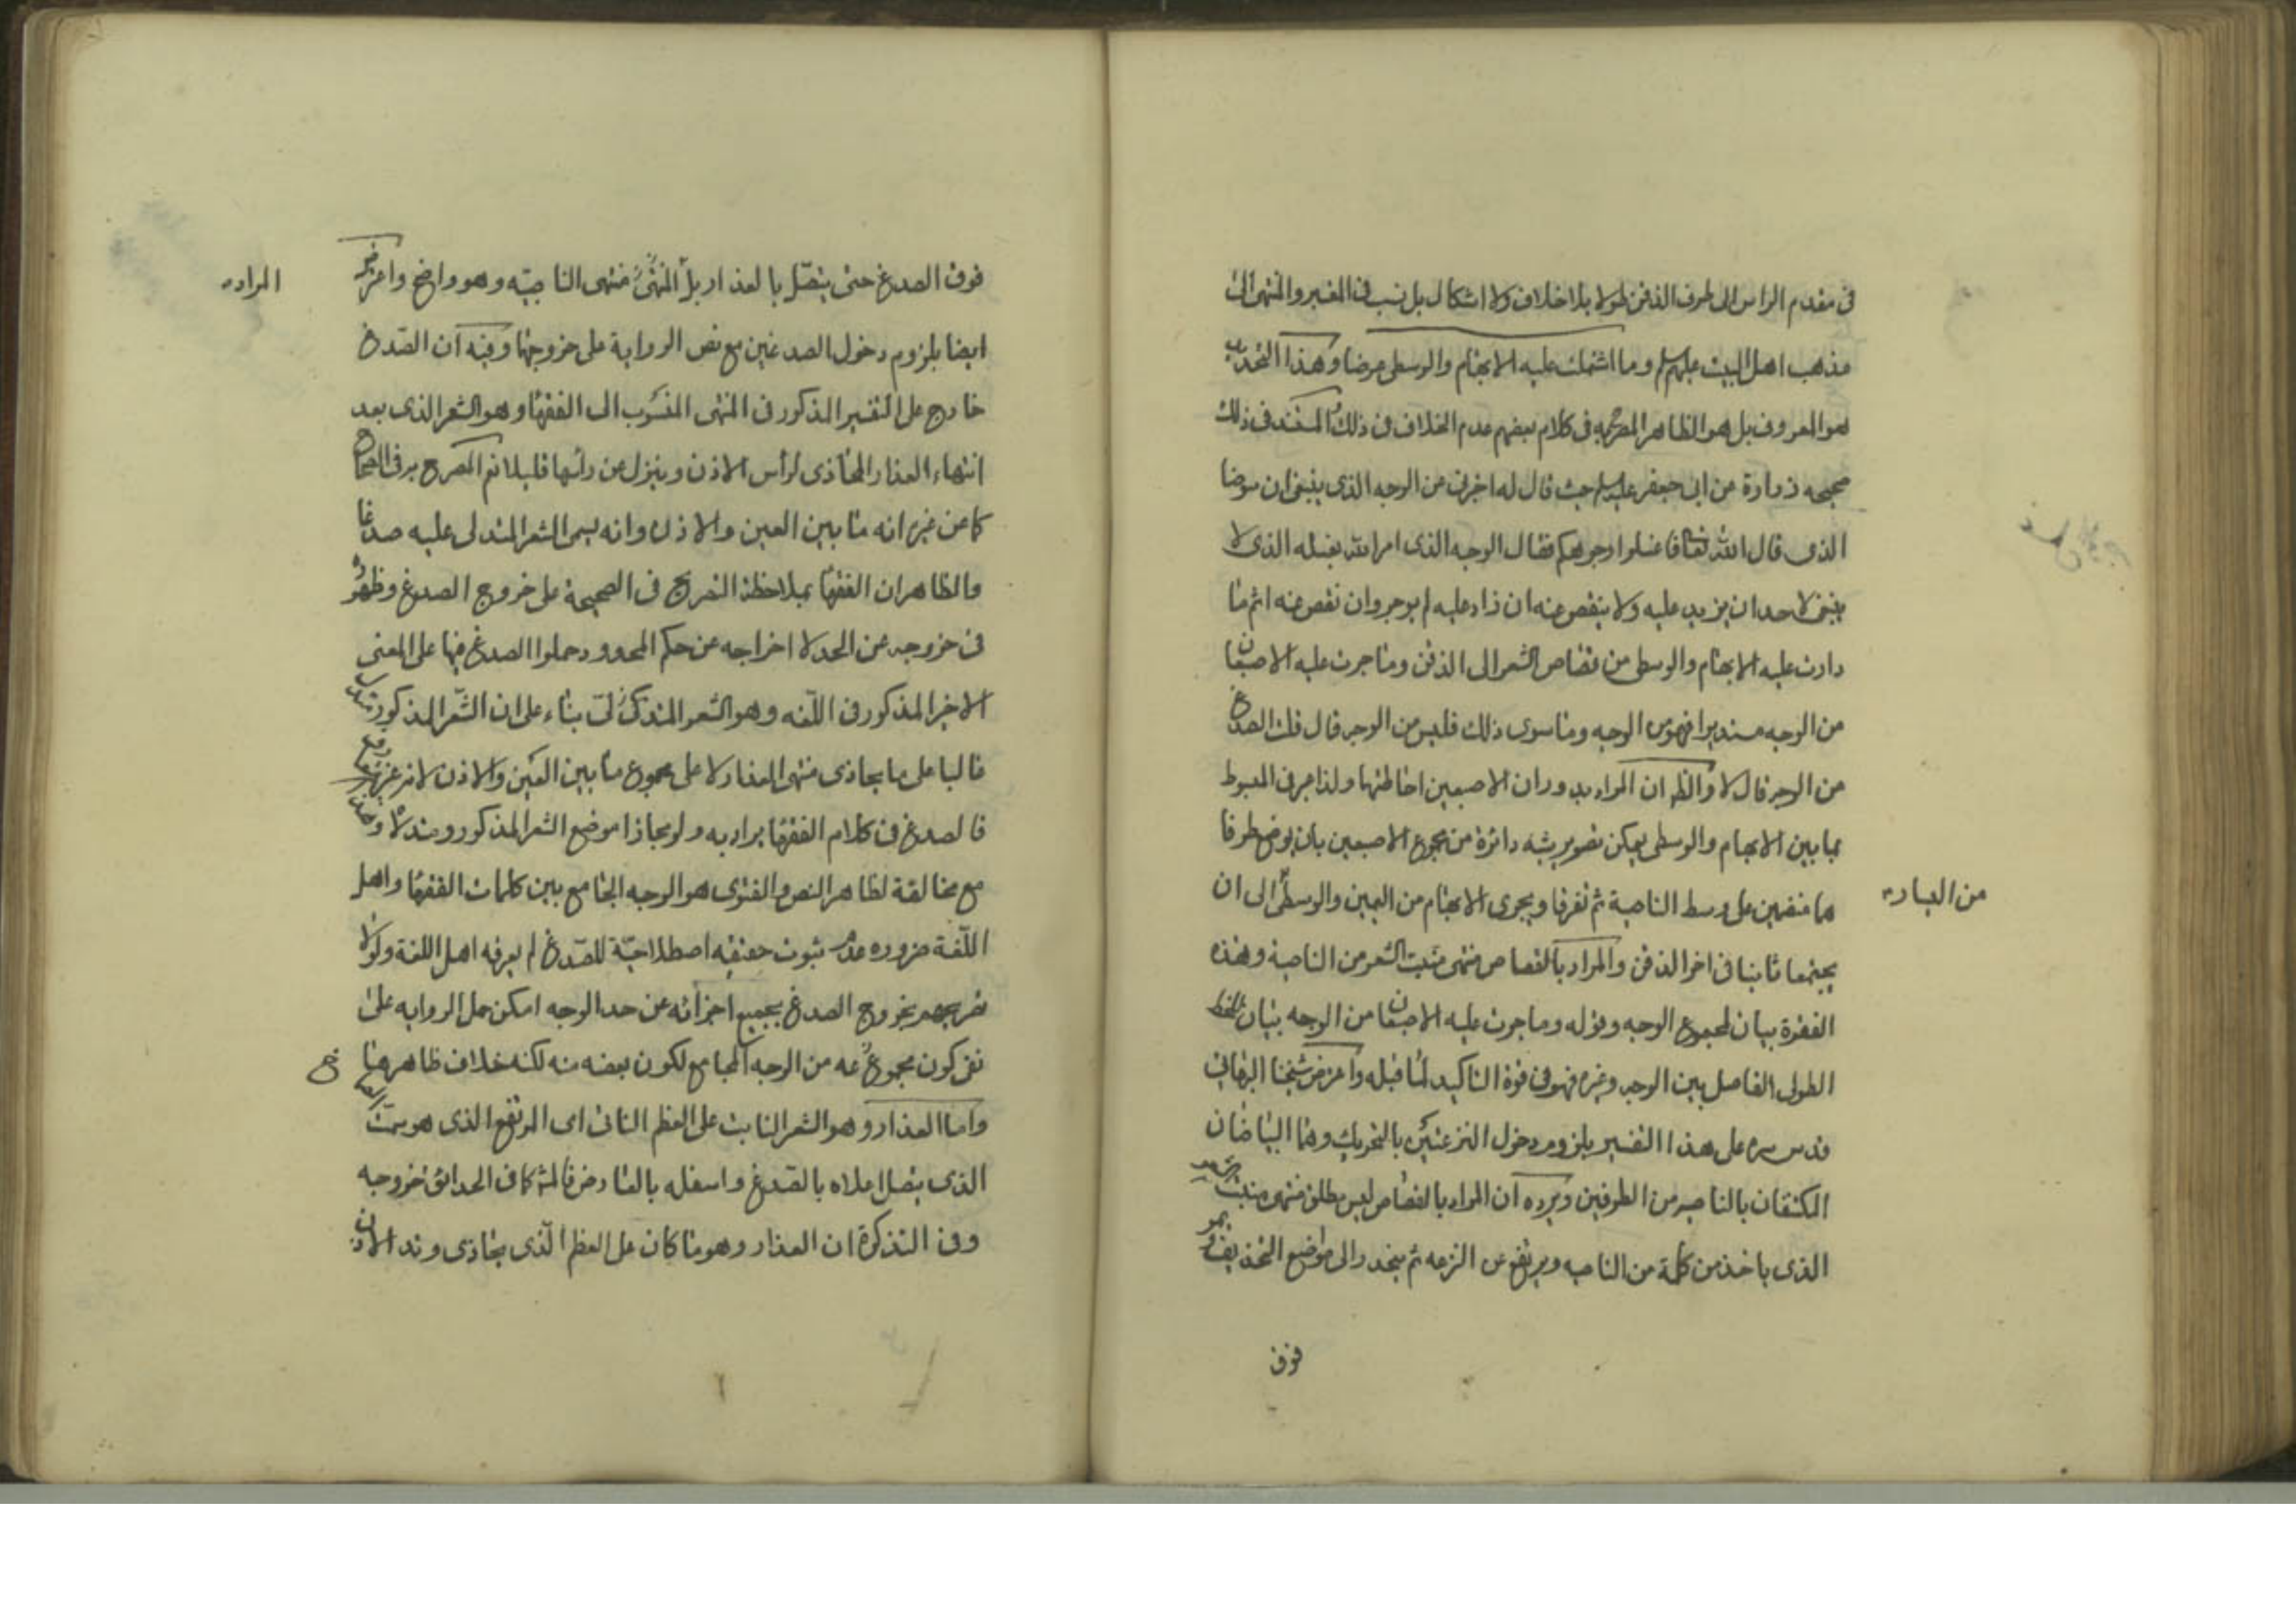 فى مقدم الراس الى طرف الذقن طولا بلا خلاف ولا اشكال بل نسب فى المعتبر والمنتهى الى
مذهب اهل البيت عليهم السلم وما اشتملت عليه الابهام والوسطى عرضا وهذا التحديد
هو المعروف بل هو الظاهر المصرح به فى كلام بعضهم عدم الخلاف فى ذلك والمستند فى ذلك
صحيحه زرارة عن ابى جعفر عليه السلم حيث قال له اخبرنى عن الوجه الذى ينبغى ان يوضا
الذى قال الله تعالى فاغسلوا وجوهكم فقال الوجه الذى امر الله بغسله الذى لا
ينبغى لاحد ان يزيد عليه ولا ينقص عنه ان زاد عليه لم يوجر وان نقص عنه اثم ما
دارت عليه الابهام والوسطى من قصاص الشعر الى الذقن وما جرت عليه الاصبعان
من الوجه مستديرا فهو من الوجه وما سوى ذلك فليس من الوجه قال قلت الصدغ
من الوجه قال لا والظ ان المراد بدوران الاصبعين احاطتهما ولذا عبر فى المبسوط
بما بين الابهام والوسطى يمكن تصوير شبه دائرة من مجموع الاصبعين بان يوضع طرفا
هما منضمين على وسط الناصية ثم تفرقا ويجرى الابهام من اليمين والوسطى الى ان
من اليسار
يجتمعا ثانيا فى اخر الذقن والمراد بالقصاص منتهى منبت الشعر من الناصية وهذه
الفقرة بيان لمجموع الوجه وقوله وما جرت عليه الاصبعان من الوجه بيان للخط
الطولى الفاصل بين الوجه وغيره فهو فى قوة التاكيد لما قبله واعترض شيخنا البهائى
قدس سره على هذا التفسير بلزوم دخول النزعتين بالتحريك وهما البياضان
المكتنفان بالناصيه من الطرفين ويرده ان المراد بالقصاص ليس مطلق منتهى منبت الشعر
الذى ياخذ من كلمة من الناصيه ويرتفع عن النزعه ثم ينحدر الى مواضع التحذيف ويمر
فوق
فوق الصدغ حتى يتصل بالعذار بل منتهى الناصيه وهو واضح واعترض
المراد
ايضا بلزوم دخول الصدغين مع نص الرواية على خروجها وفيه ان الصدغ
خارج على التفسير المذكور فى المنتهى المنسوب الى الفقهاء وهو الشعر الذى بعد
انتهاء العذار المحاذى لراس الاذن وينزل عن راسها قليلا نعم المصرح به فى الصحاح
كما عن غيره انه ما بين العين والاذن وانه يسمى الشعر المتدلى عليه صدغا
والظاهر ان الفقهاء بملاحظة التصريح فى الصحيحة على خروج الصدغ وظهوره
فى خروجه عن الحد لا اخراجه عن حكم المحدود حملوا الصدغ فيها على المعنى
الاخير المذكور فى اللغه وهو الشعر المتدلى بناء على ان الشعر المذكور يتدلى
غالبا على ما يحاذى منتهى العذار لا على مجموع ما بين العين والاذن
فالصدغ فى كلام الفقهاء يراد به ولو مجازا موضع الشعر المذكور وهذا
مع مخالفة لظاهر النص والفتوى هو الوجه الجامع بين كلمات الفقهاء واهل
اللغة ضروره عدم ثبوت حقيقه اصطلاحيّة للصدغ لم يعرفه اهل اللغة ولولا
تصريحهم بخروج الصدغ بجميع اجزائه عن حد الوجه امكن حمل الرواية على
نفى كون مجموعه من الوجه المجامع لكون بعضه منه لكنه خلاف ظاهرها
واما العذار وهو الشعر النابت على العظم الناتى اى المرتفع الذى هو سمت
الذى يتصل اعلاه بالصدغ واسفله بالعارض فالمش كما فى الحدائق خروجه
وفى التذكرة ان العذار وهو ما كان على العظم الذى يحاذى وتد الاذن